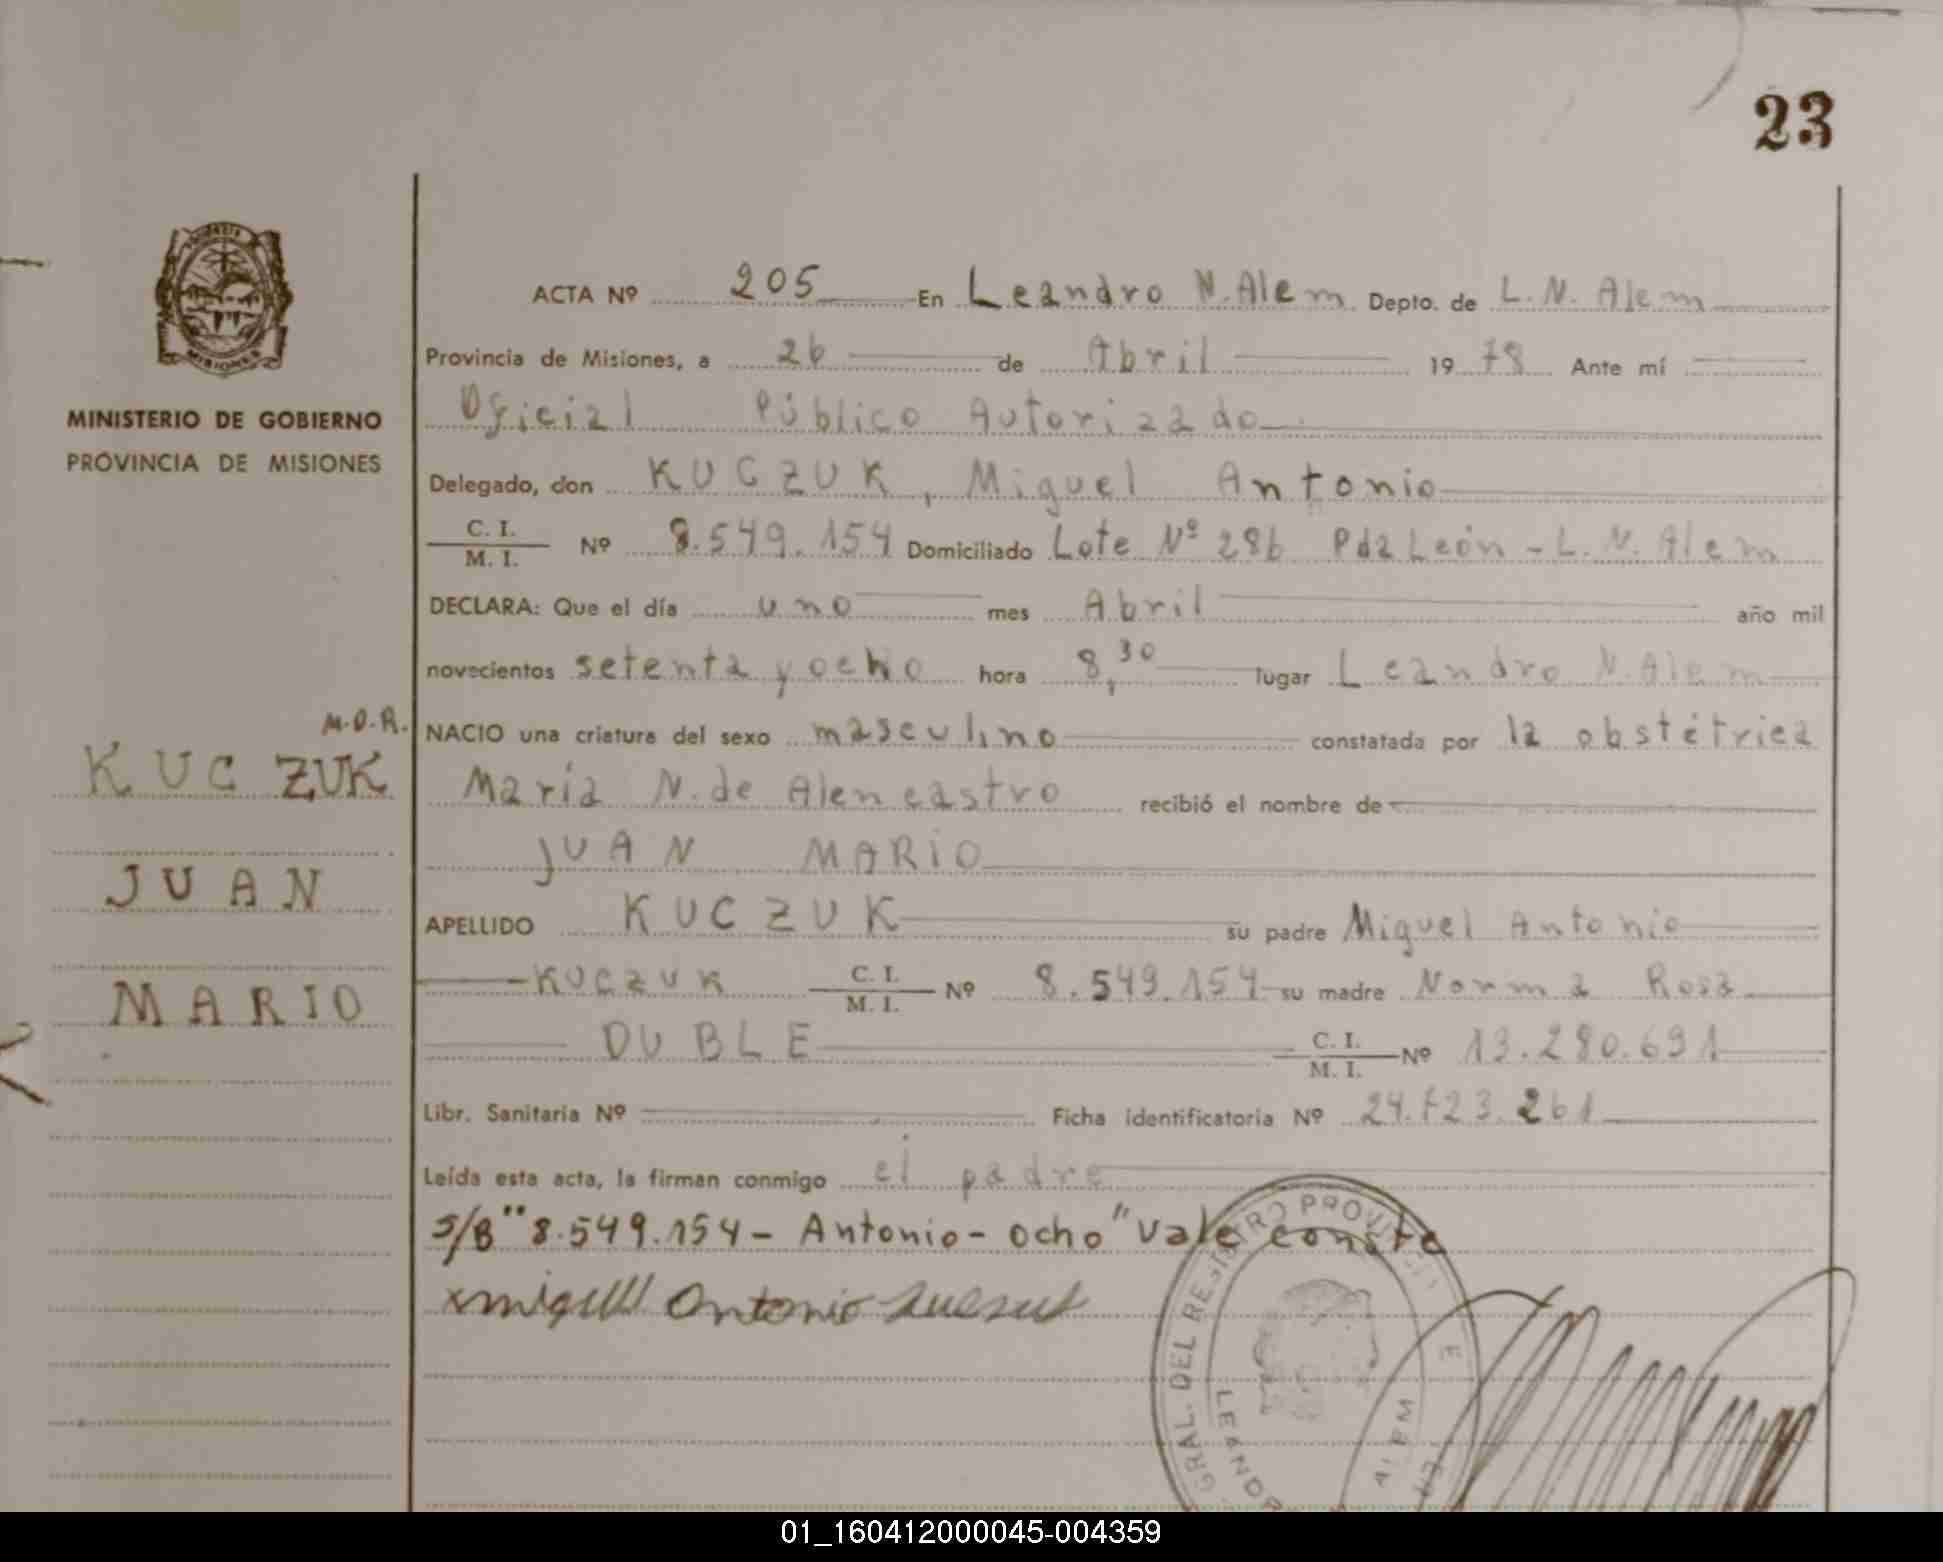 23
MISIONES
MINISTERIO DE GOBIERNO
PROVINCIA DE MISIONES
M.O.R.
KUCZUK
JUAN
MARIO
ACTA Nº 205 En Leandro N. Alem Depto. de L. N. Alem
Provincia de Misiones, a 26 de Abril 1978 Ante mí
Oficial Público Autorizado
Delegado, don KUCZUK, Miguel Antonio
C. I. / M. I. Nº 8.549.154 Domiciliado Lote Nº 286 Pda León - L. N. Alem
DECLARA: Que el día uno mes Abril año mil
novecientos setenta y ocho hora 8,30 lugar Leandro N. Alem
NACIO una criatura del sexo masculino constatada por la obstétrica
María N. de Alencastro recibió el nombre de
JUAN MARIO
APELLIDO KUCZUK su padre Miguel Antonio
KUCZUK C. I. / M. I. Nº 8.549.154 su madre Norma Rosa
DUBLE C. I. / M. I. Nº 13.280.691
Libr. Sanitaria Nº Ficha identificatoria Nº 24.723.261
Leída esta acta, la firman conmigo el padre
S/B "8.549.154 - Antonio - ocho" Vale conste
Antonio
GRAL. DEL REGISTRO PROVINCI
LEANDR ALEM
01_160412000045-004359